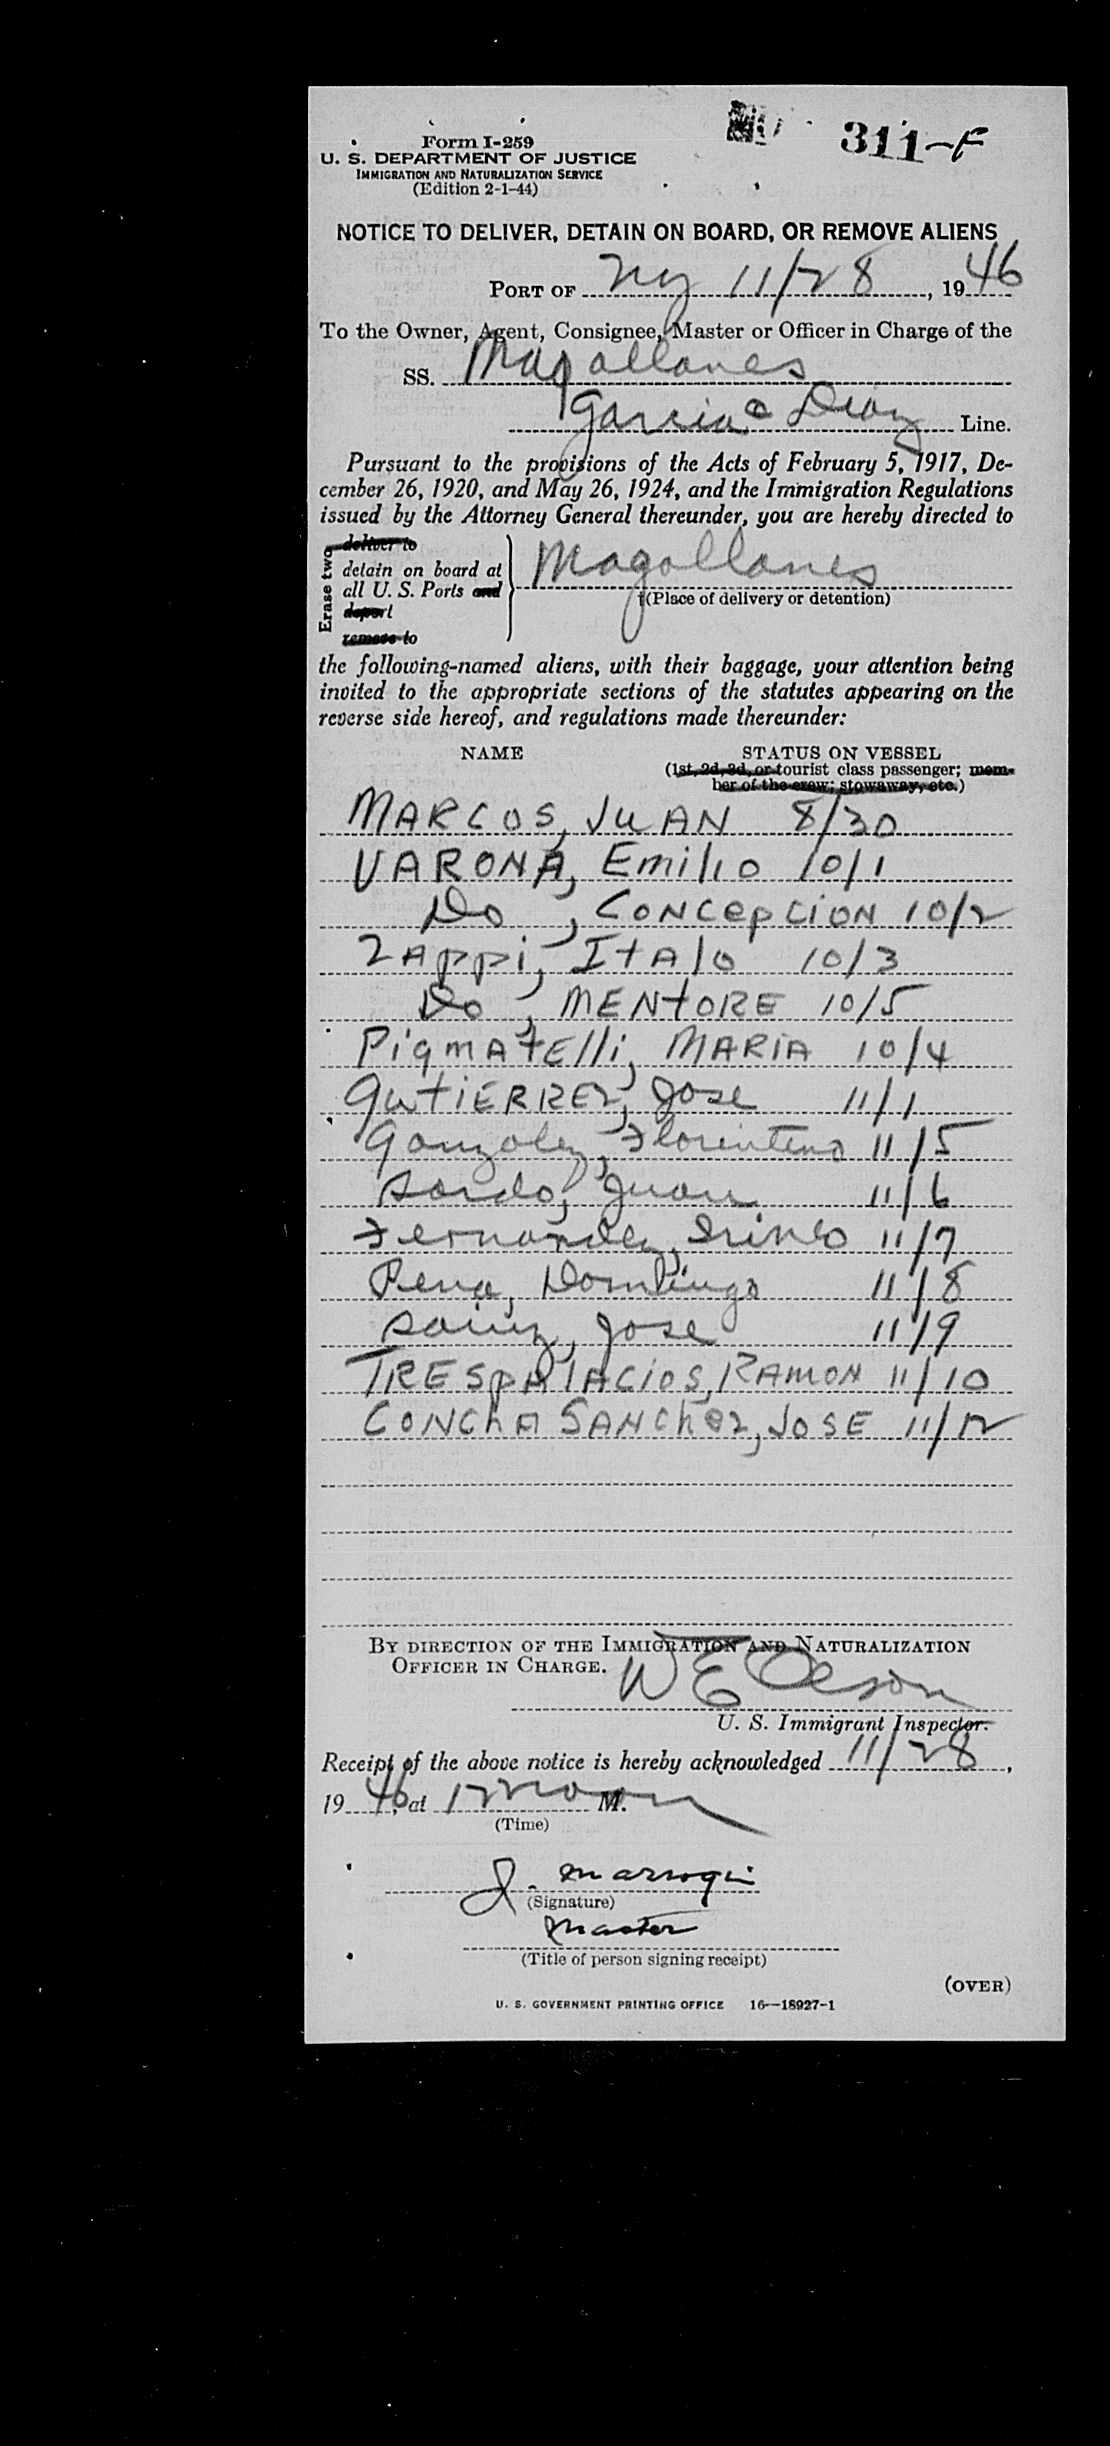 311-F
Form I-259
U. S. DEPARTMENT OF JUSTICE
IMMIGRATION AND NATURALIZATION SERVICE
(Edition 2-1-44)
NOTICE TO DELIVER, DETAIN ON BOARD, OR REMOVE ALIENS
PORT OF NY 11/28, 1946
To the Owner, Agent, Consignee, Master or Officer in Charge of the
SS. Magallanes
Garcia & Diaz Line.
Pursuant to the provisions of the Acts of February 5, 1917, De-
cember 26, 1920, and May 26, 1924, and the Immigration Regulations
issued by the Attorney General thereunder, you are hereby directed to
Erase two
deliver to
detain on board at
all U. S. Ports and
deport
remove to
Magallanes
(Place of delivery or detention)
the following-named aliens, with their baggage, your attention being
invited to the appropriate sections of the statutes appearing on the
reverse side hereof, and regulations made thereunder:
NAME STATUS ON VESSEL
(1st, 2d, 3d, or tourist class passenger; mem-
ber of the crew; stowaway, etc.)
MARCOS, JUAN 8/30
VARONA, Emilio 10/1
Do, CONCepCiON 10/2
ZAppi, ItAlo 10/3
Do, MENtORE 10/5
PigmAtElli, MARiA 10/4
GutiERREZ, Jose 11/1
Gonzalez, Florentino 11/5
Sordo, Juan 11/6
Fernandez, Irineo 11/7
Pena, Domingo 11/8
Sainz, Jose 11/9
TRESpAlACiOS, RAMON 11/10
CONChA SANChez, JOSE 11/12
BY DIRECTION OF THE IMMIGRATION AND NATURALIZATION
OFFICER IN CHARGE.
W E Olson
U. S. Immigrant Inspector.
Receipt of the above notice is hereby acknowledged 11/28,
1946, at 12 noon M.
(Time)
J. Marroqin
(Signature)
Master
(Title of person signing receipt)
(OVER)
U. S. GOVERNMENT PRINTING OFFICE 16—18927-1